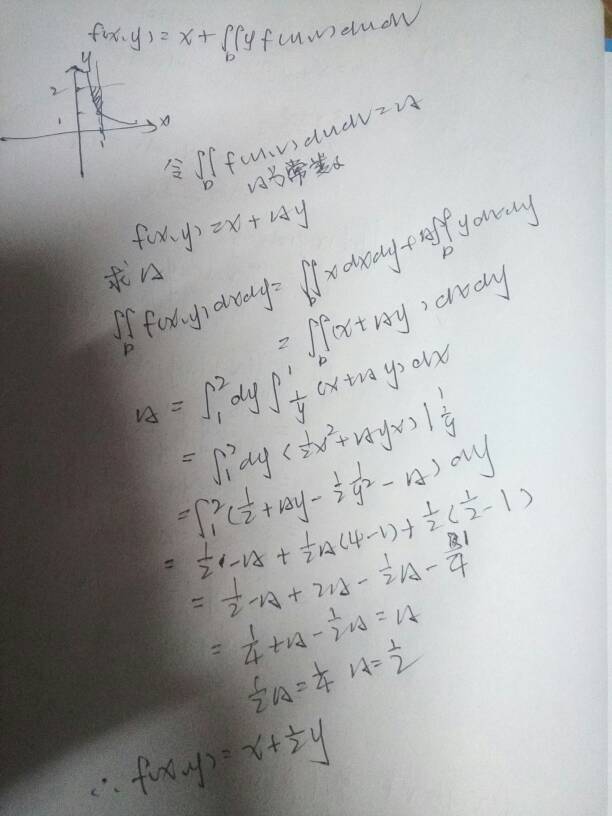 f(x,y)=x+∬_D y f(u,v)dudv
y
2
1
x
1
令∬_D f(u,v)dudv=A
A为常数
f(x,y)=x+Ay
求A
∬_D f(x,y)dxdy=∬_D xdxdy+A∬_D ydxdy
=∬_D (x+Ay)dxdy
A=∫₁²dy∫_{1/y}^1 (x+Ay)dx
=∫₁²dy(½x²+Ayx)|_{1/y}^1
=∫₁²(½+Ay-½ 1/y²-A)dy
=½-A+½A(4-1)+½(½-1)
=½-A+2A-½A-¼
=¼+A-½A=A
½A=¼ A=½
∴f(x,y)=x+½y